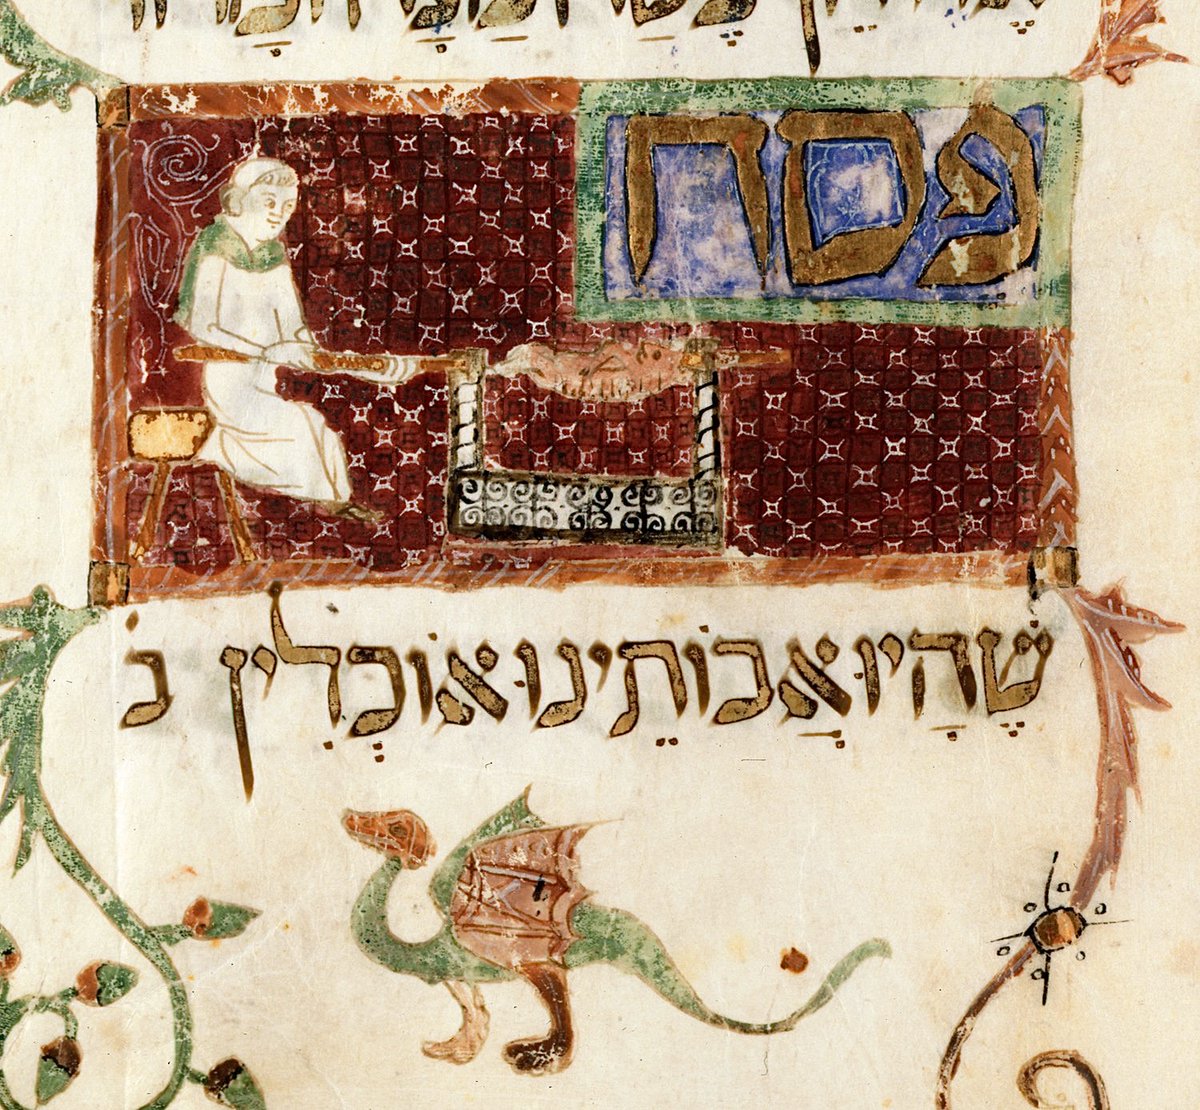 פסח
שֶׁהָיוּ אֲבוֹתֵינוּ אוֹכְלִין בֹ